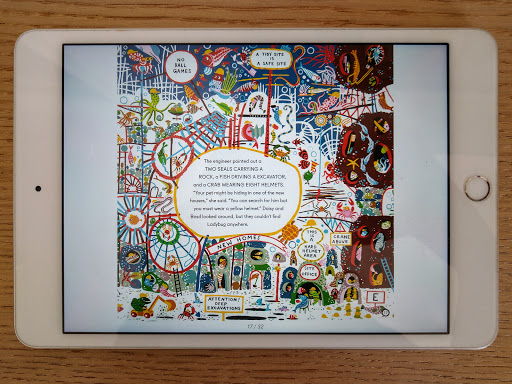 NO
BALL
GAMES
A TIDY SITE
IS
A SAFE SITE
The engineer pointed out a
TWO SEALS CARRYING A
ROCK, a FISH DRIVING A EXCAVATOR,
and a CRAB WEARING EIGHT HELMETS.
"Your pet might be hiding in one of the new
houses," she said. "You can search for him but
you must wear a yellow helmet." Daisy and
Brad looked around, but they couldn't find
Ladybug anywhere.
NEW HOMES
THIS
IS A
HARD
HELMET
AREA
CRANE
ABOVE
SITE
OFFICE
ATTENTION!
DEEP
EXCAVATIONS
E
17 / 32